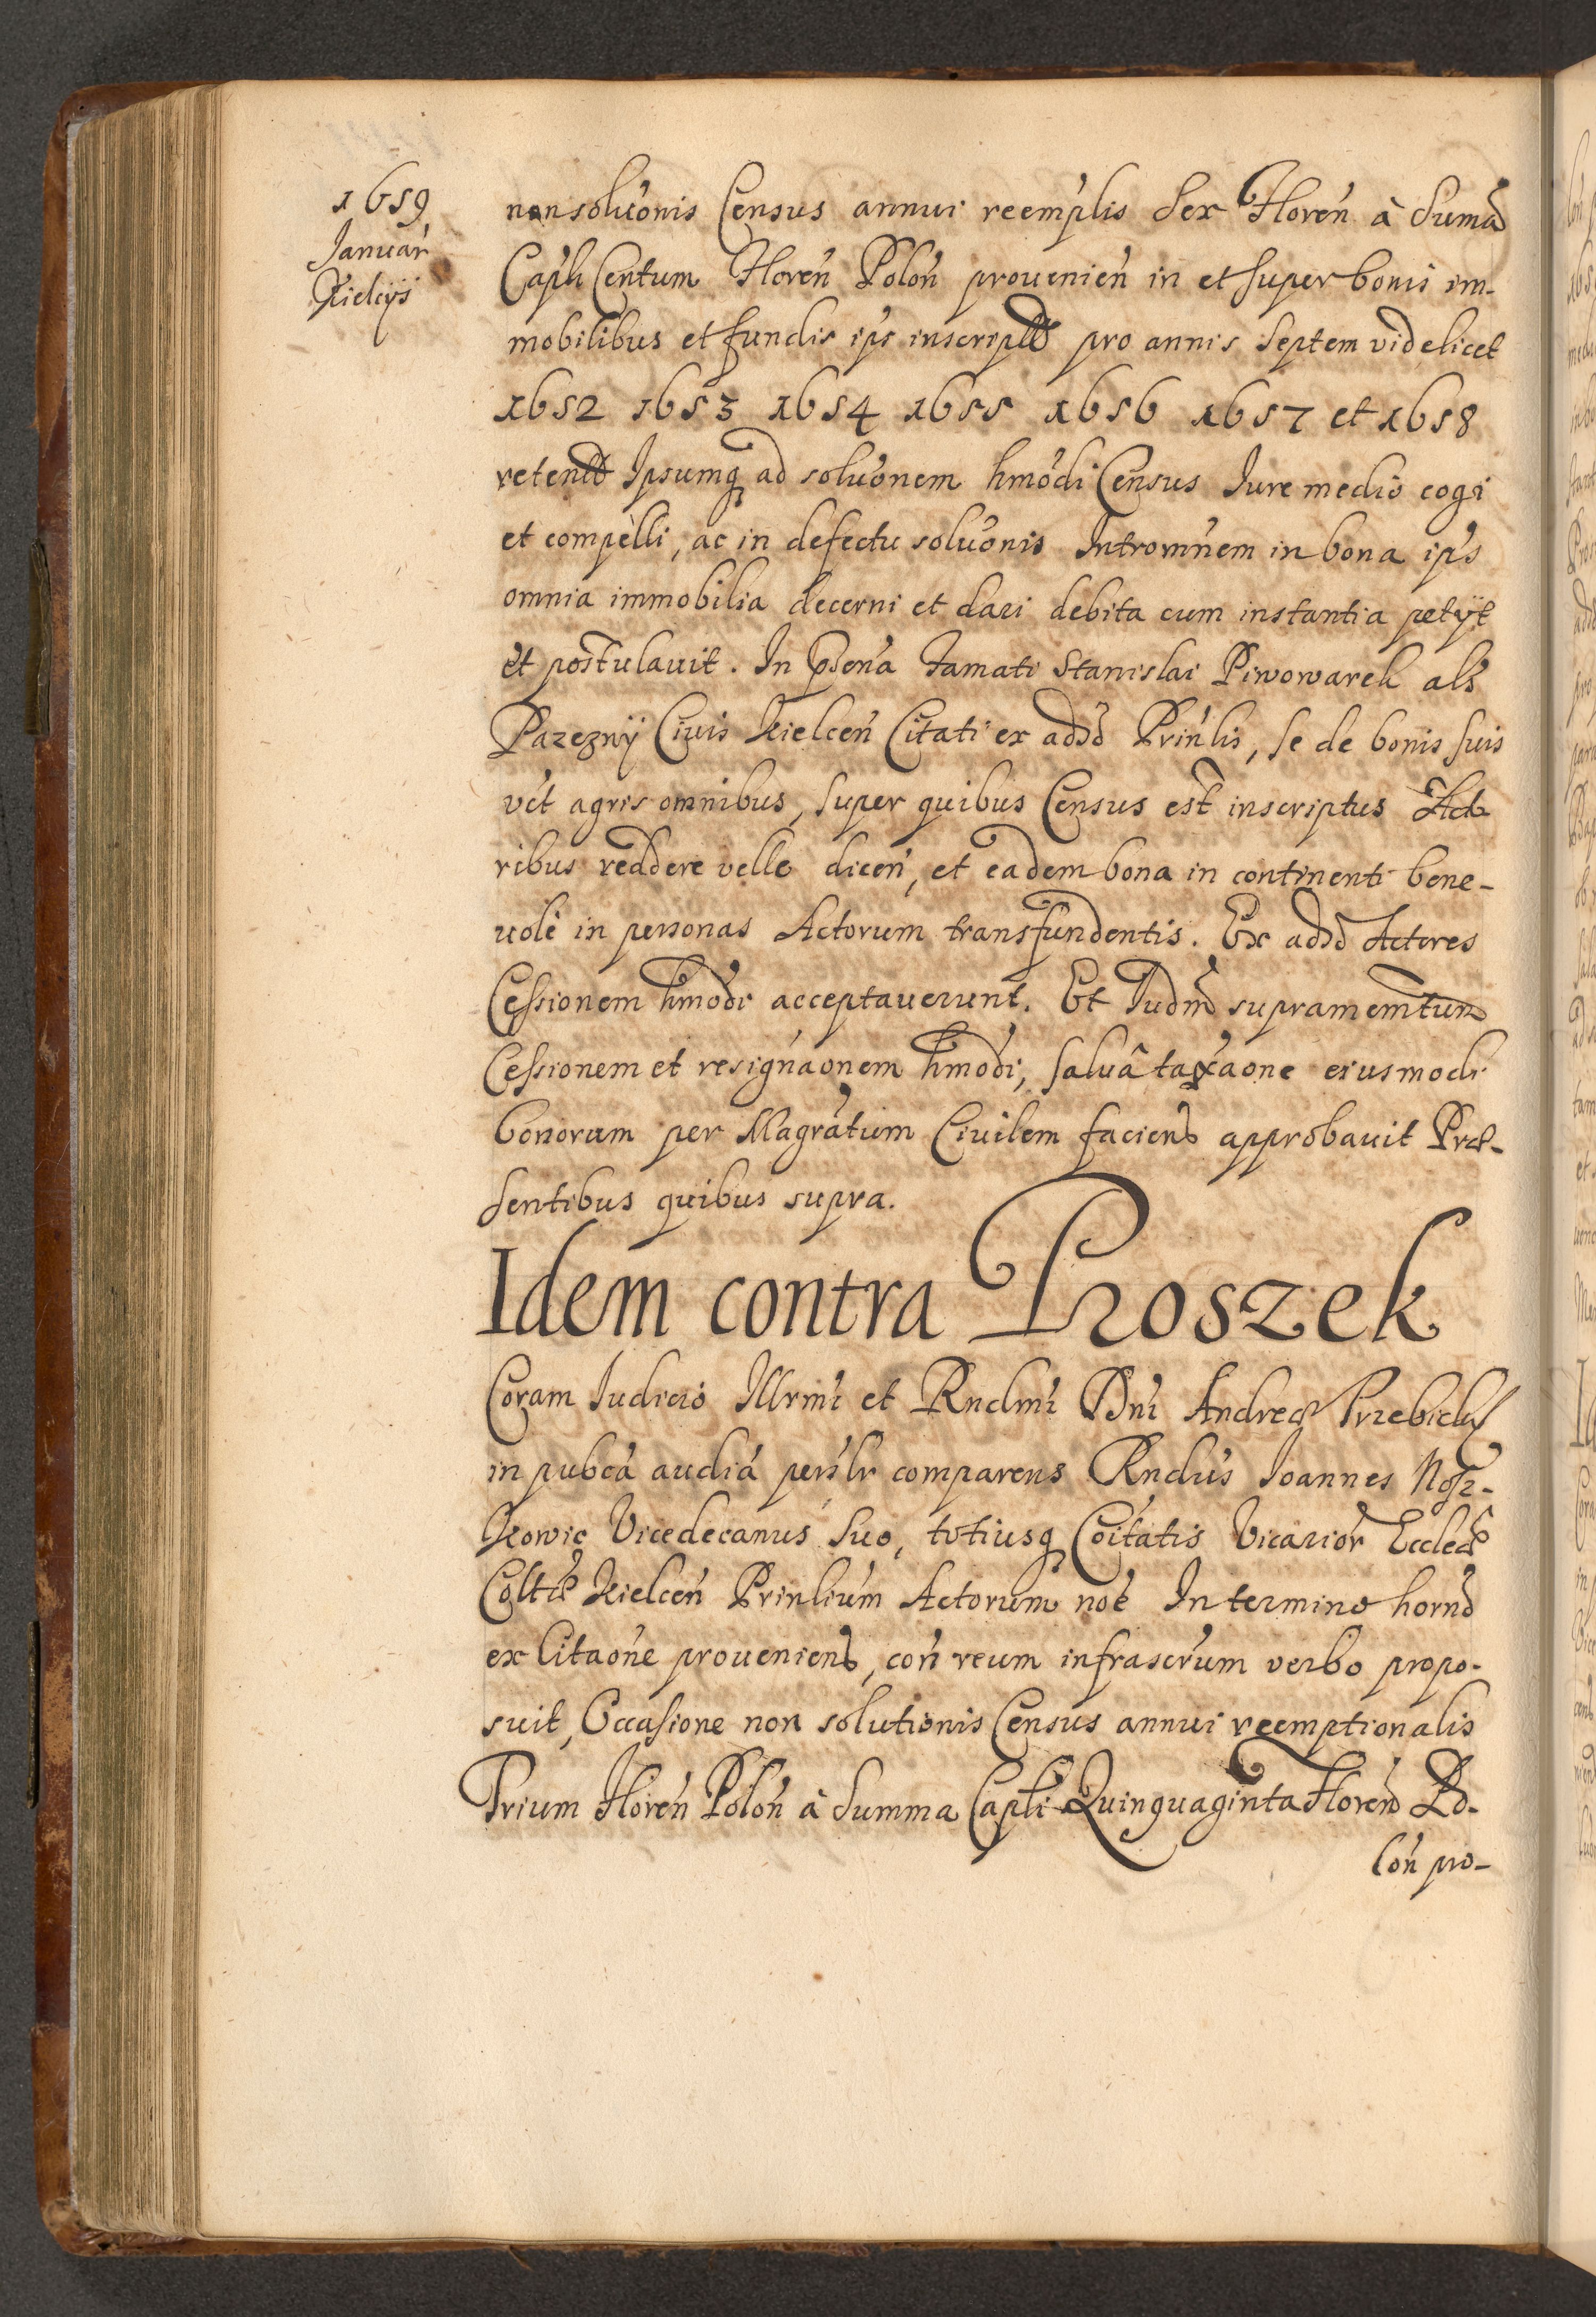 1659
Januar
Kielcys
non soluonis Census annui reemplis Sex Floren à Suma
Caplı Centum Floren Polon prouenien in et super bonis im-
mobilibus et fundis ips inscript pro annis Septem videlicet
1652 1653 1654 1655 1656 1657 et 1658
retent Ipsumq ad soluonem hmodi Census Iure medio cogi
et compelli, ac in defectu soluonis Intromnem in bona ips
omnia immobilia decerni et dari debita cum instantia petÿt
et postulauit. In psena Famati Stanislai Piwowarek als
Parezny Ciuis Kielcen Citati ex adso Prinlis, se de bonis suis
vet agris omnibus, super quibus Census est inscriptus Acto
ribus reddere velle dicen, et eadem bona in continenti bene-
uole in personas Actorum transfundentis. Ex adso Actores
Cessionem hmodi acceptauerunt. Et Iudm supramemtum
Cessionem et resignaonem hmodi, saluâ taxaone eiusmodi
bonorum per Magratum Ciuilem faciend approbauit Præ-
sentibus quibus supra.
Idem contra Proszek
Coram Iudicio Illrmi et Rndmi Dni Andreæ Trzebicky
in pubca audia persolr comparens Rndus Ioannes Nosz-
kowic Vicedecanus suo, totiusq Coitatis Vicarior Eccleæ
Coltæ Kielcen Prinlium Actorum noe In termino horno
ex Citaone proueniend, con reum infrascrum verbo propo-
suit, Occasione non solutionis Census annui reemptionalis
Trium Floren Polon à Summa Capli Quinquaginta Floren Po-
lon pro-